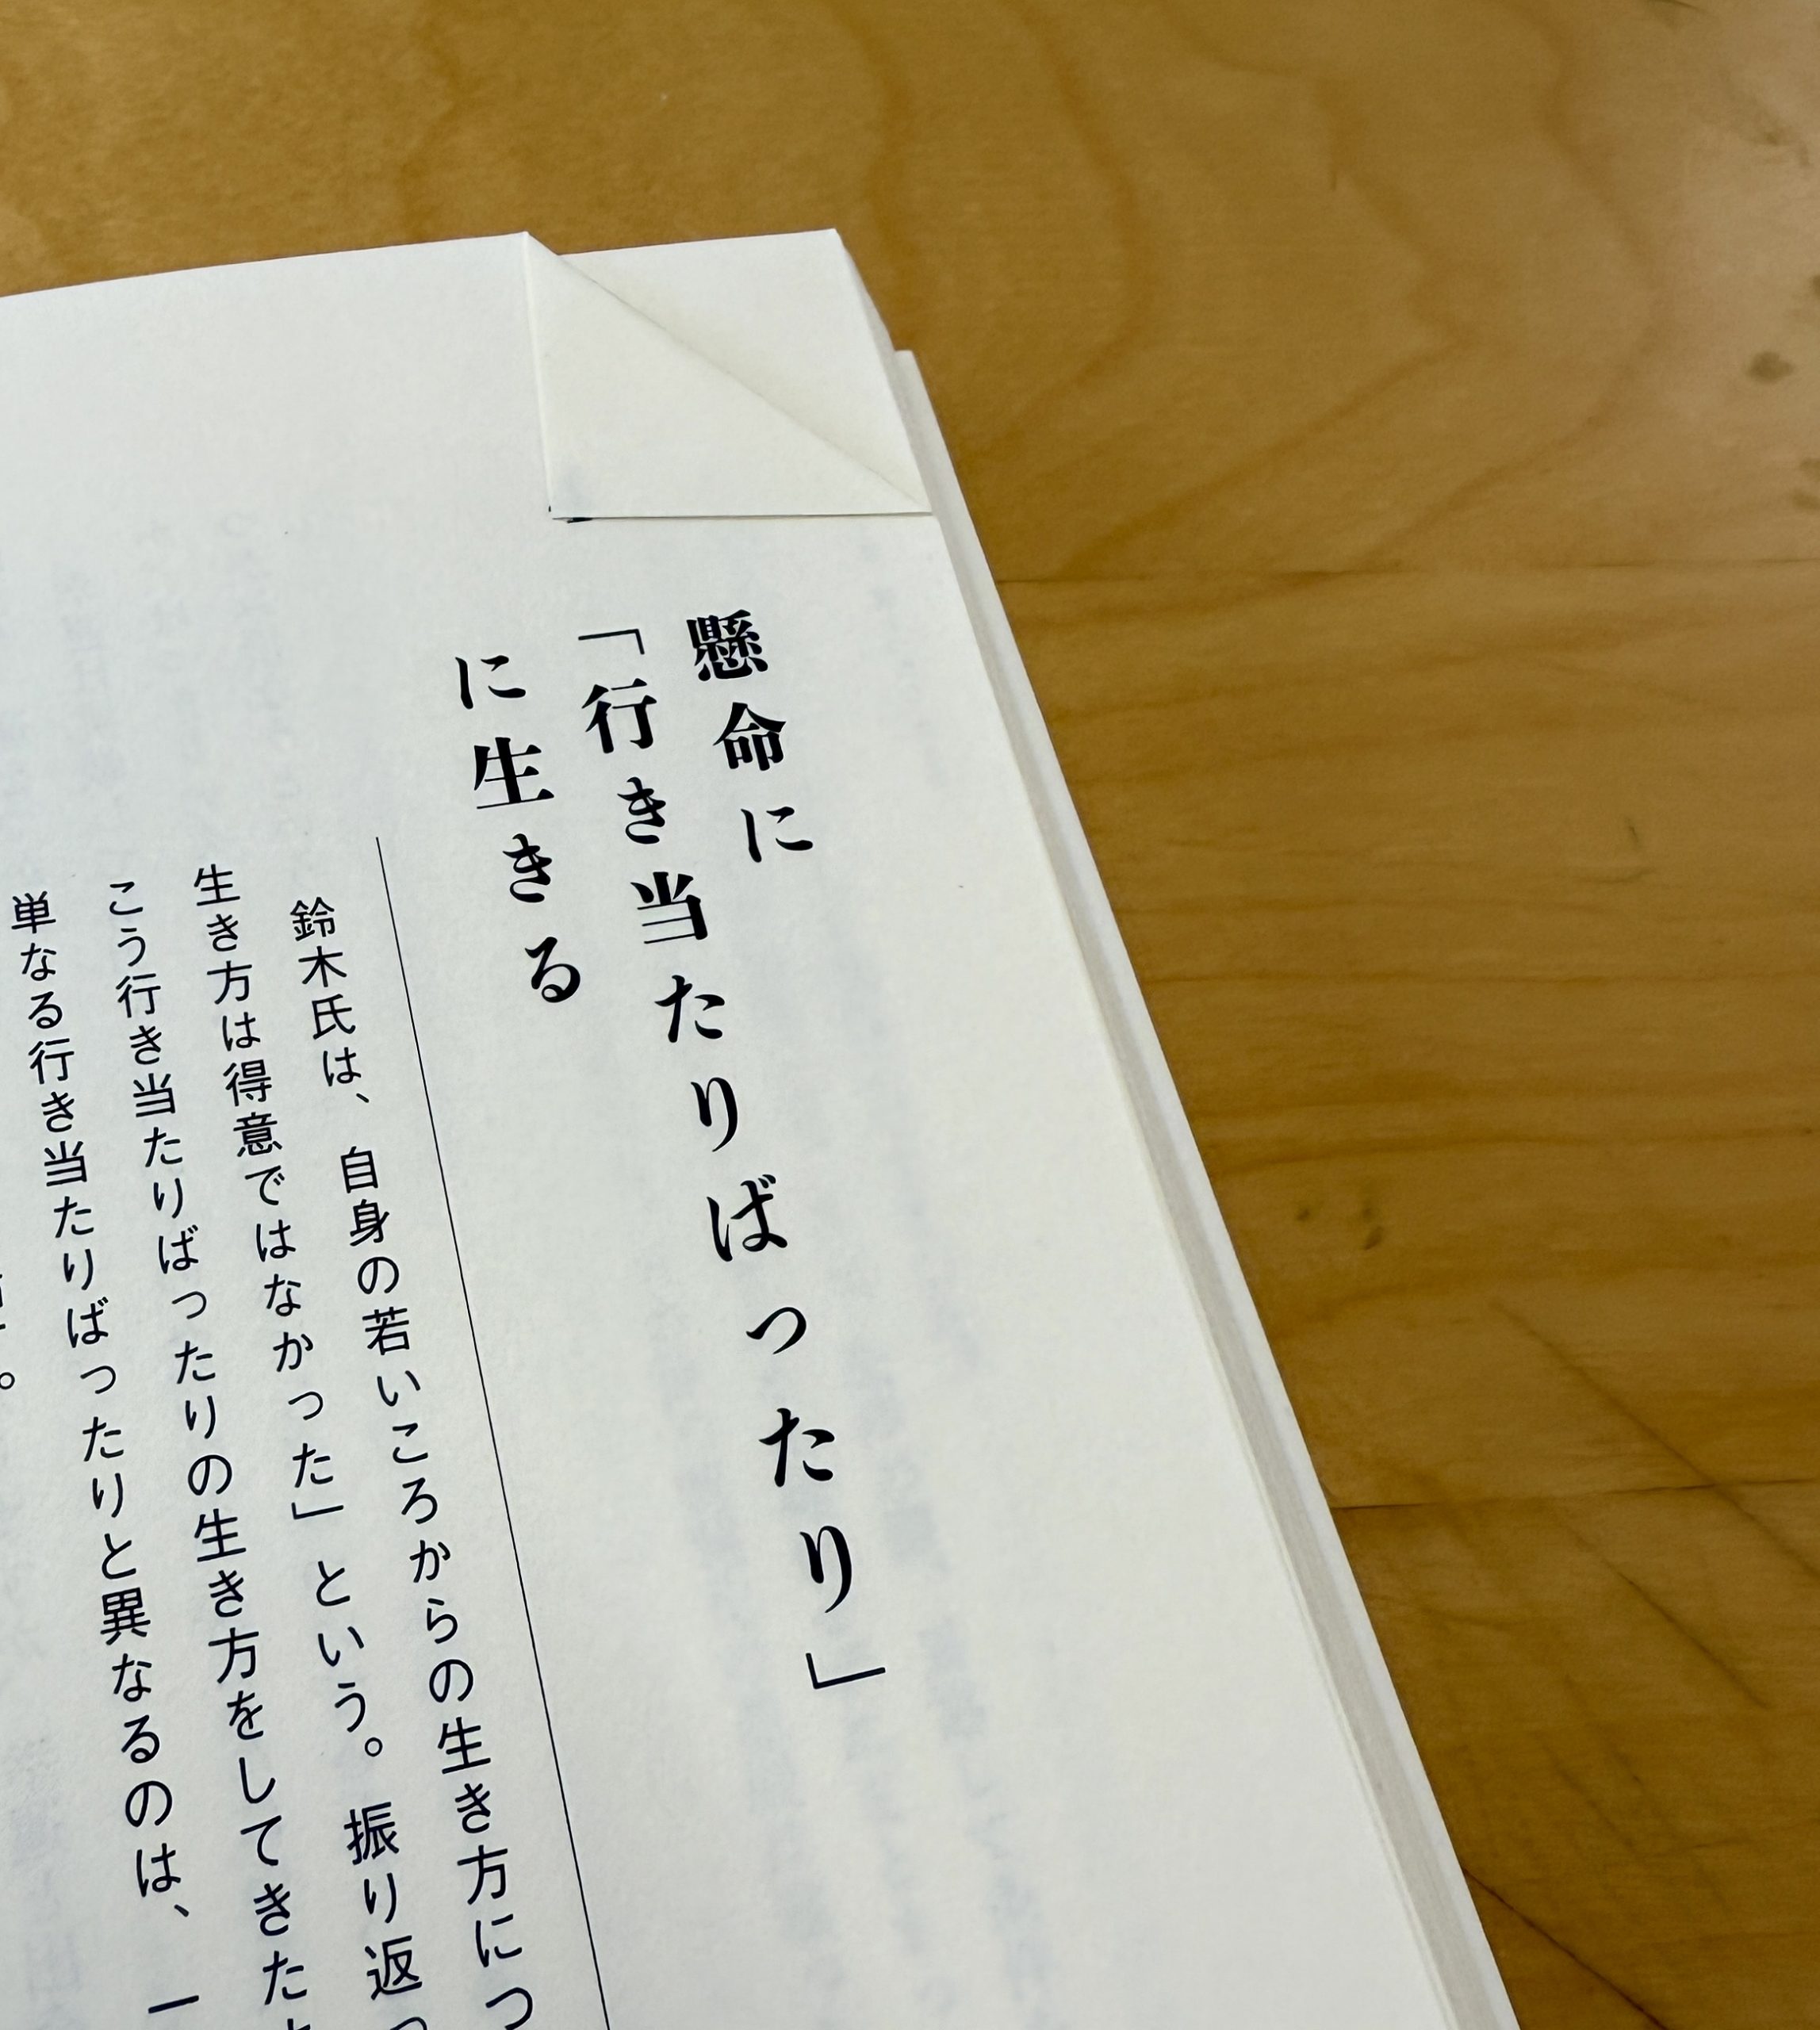 懸命に
「行き当たりばったり」
に生きる
鈴木氏は、自身の若いころからの生き方につ
生き方は得意ではなかった」という。振り返っ
こう行き当たりばったりの生き方をしてきた
単なる行き当たりばったりと異なるのは、一